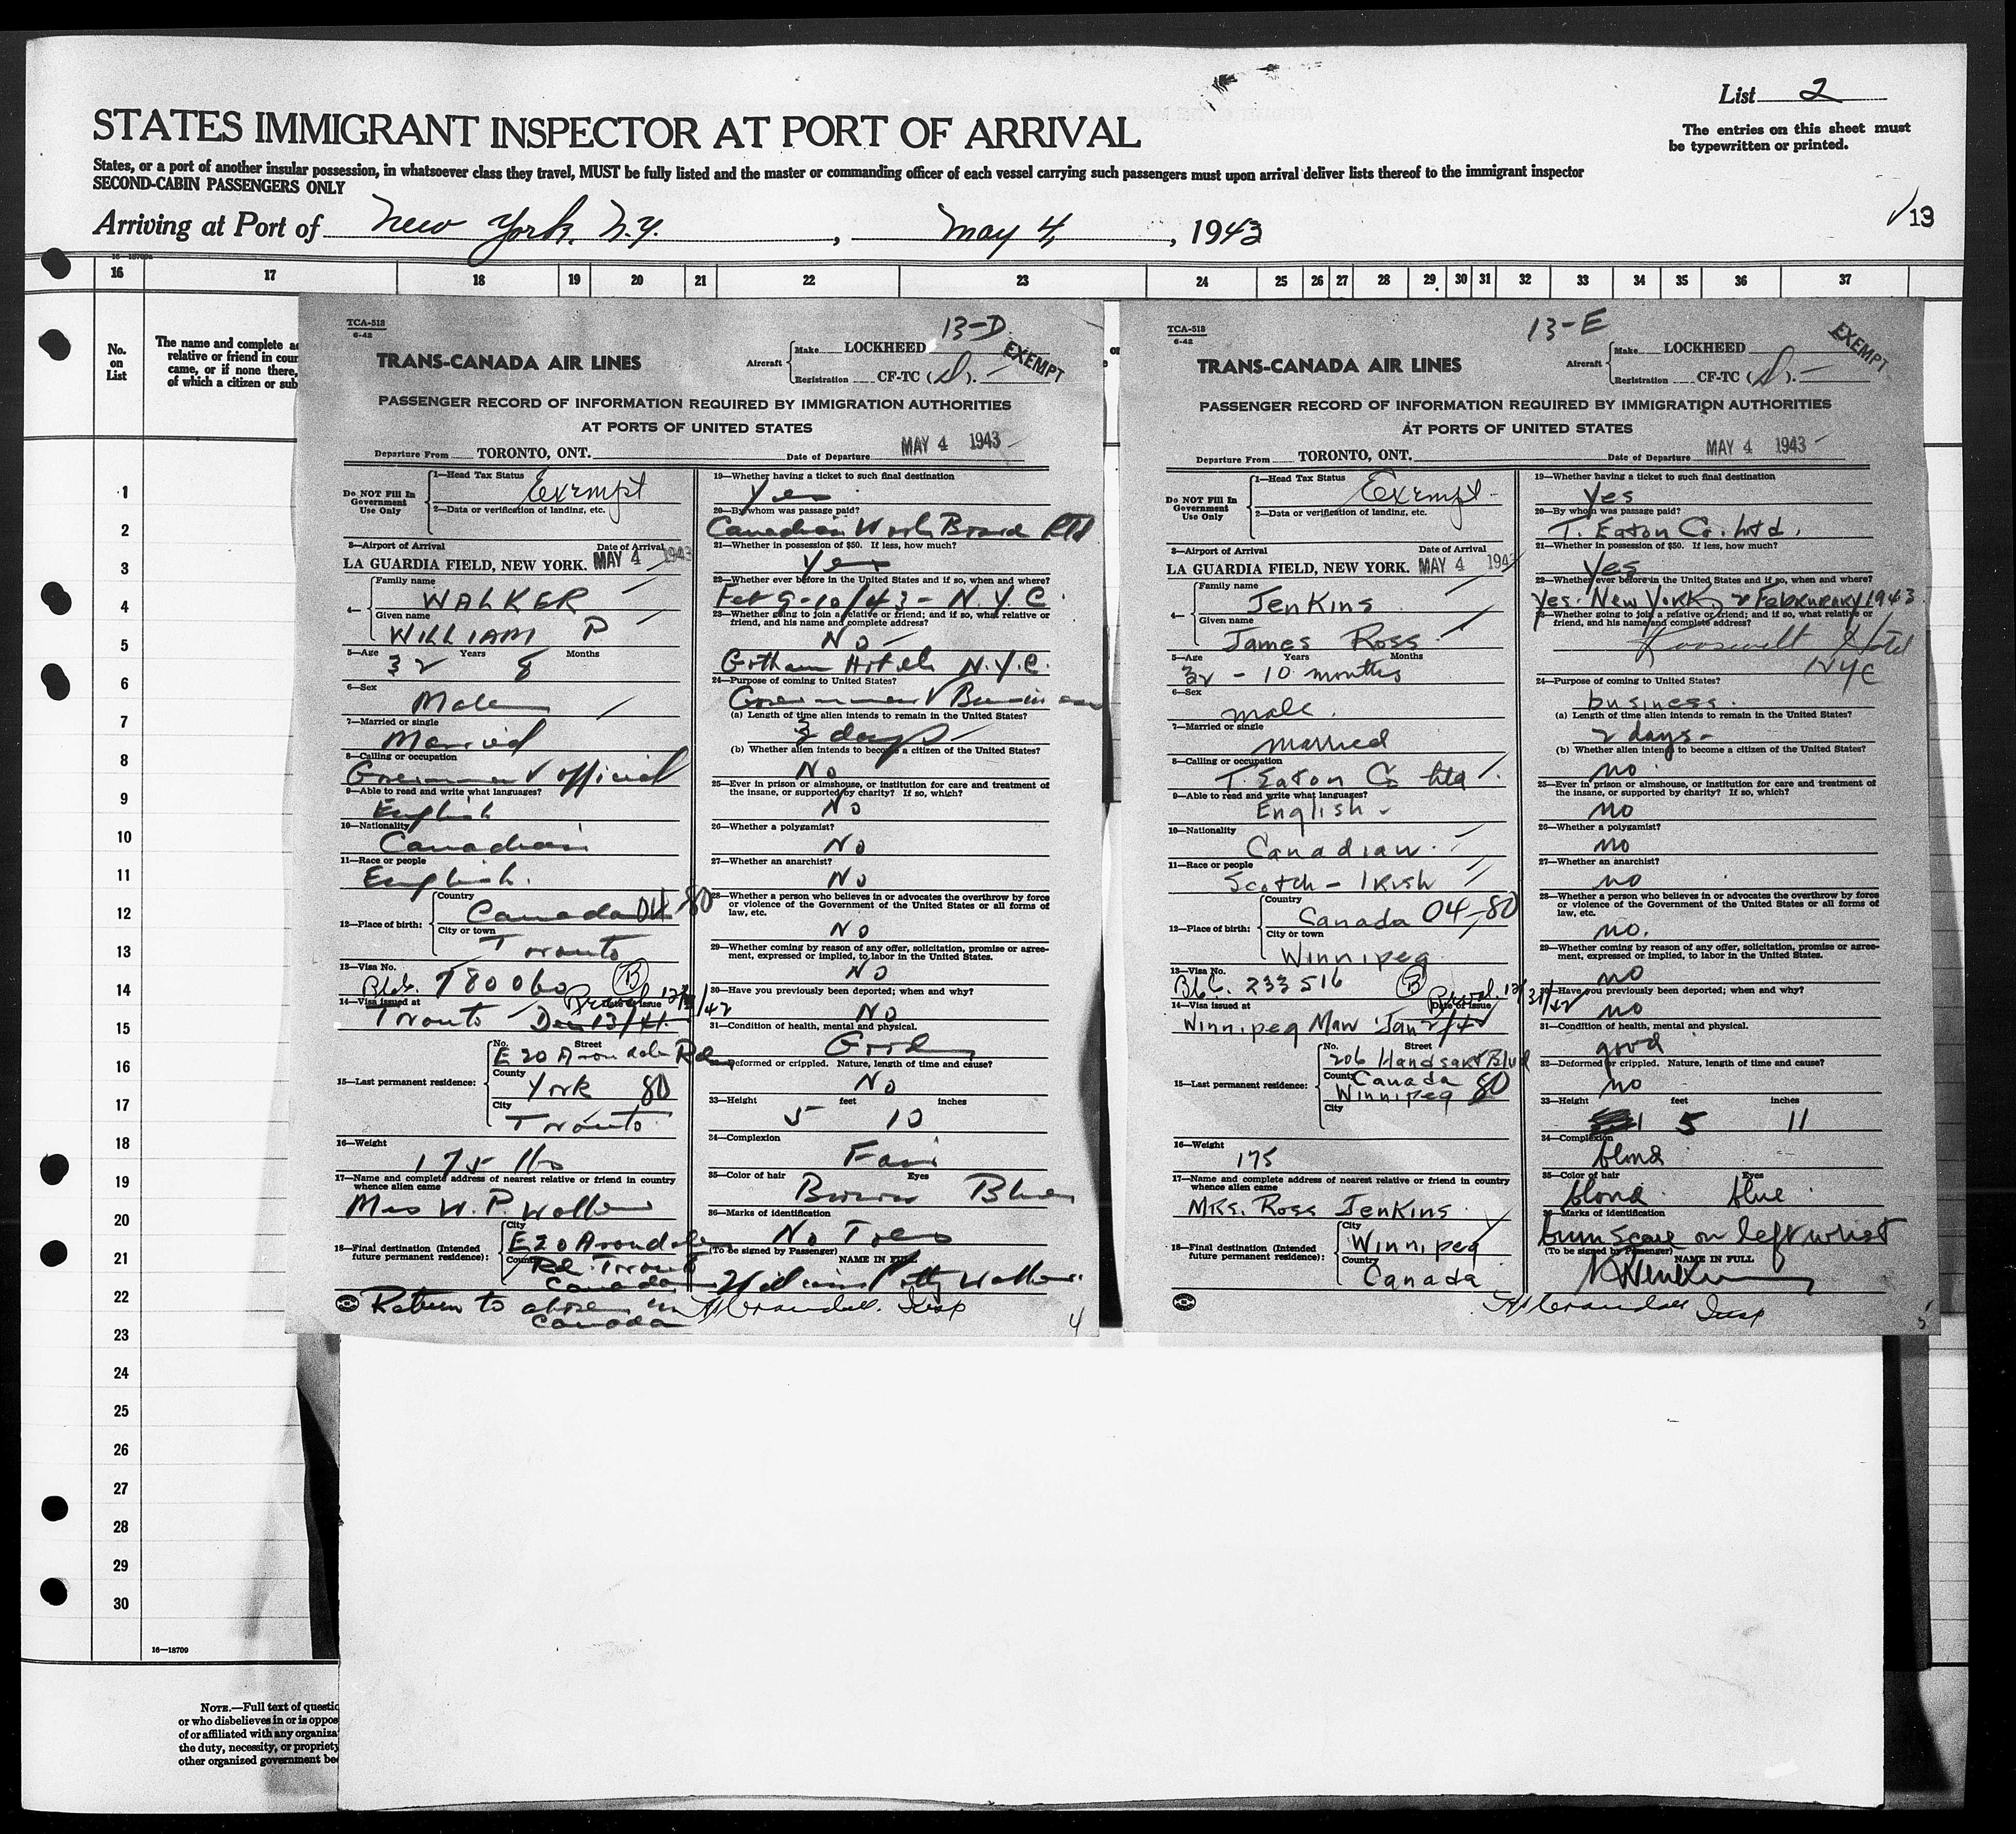 List 2
STATES IMMIGRANT INSPECTOR AT PORT OF ARRIVAL
The entries on this sheet must
be typewritten or printed.
States, or a port of another insular possession, in whatsoever class they travel, MUST be fully listed and the master or commanding officer of each vessel carrying such passengers must upon arrival deliver lists thereof to the immigrant inspector
SECOND-CABIN PASSENGERS ONLY
Arriving at Port of New York, N.Y. , May 4, , 1943
√13
16 17 18 19 20 21 22 23 24 25 26 27 28 29 30 31 32 33 34 35 36 37
No.
on
List
The name and complete a
relative or friend in coun
came, or if none there,
of which a citizen or sub
1
2
3
4
5
6
7
8
9
10
11
12
13
14
15
16
17
18
19
20
21
22
23
24
25
26
27
28
29
30
16—18709
NOTE.—Full text of questio
or who disbelieves in or is oppos
of or affiliated with any organiza
the duty, necessity, or propriety
other organized government be
TCA-518
6-42
13-D
EXEMPT
TRANS-CANADA AIR LINES
Aircraft Make LOCKHEED
Registration CF-TC ( ).
PASSENGER RECORD OF INFORMATION REQUIRED BY IMMIGRATION AUTHORITIES
AT PORTS OF UNITED STATES
Departure From TORONTO, ONT. Date of Departure MAY 4 1943
Do NOT Fill In
Government
Use Only
1—Head Tax Status Exempt
2—Data or verification of landing, etc.
3—Airport of Arrival Date of Arrival
LA GUARDIA FIELD, NEW YORK. MAY 4 1943
4— Family name
WALKER
Given name
WILLIAM P
5—Age Years Months
32 8
6—Sex
Male
7—Married or single
Married
8—Calling or occupation
Government official
9—Able to read and write what languages?
English
10—Nationality
Canadian
11—Race or people
English.
12—Place of birth: Country
Canada 04-80
City or town
Toronto
13—Visa No.
780060 (B)
14—Visa issued at Date of issue
Toronto Dec 13/41
15—Last permanent residence: No. Street
E 20 Avondale Rd
County
York 80
City
Toronto
16—Weight
175 lbs
17—Name and complete address of nearest relative or friend in country
whence alien came
Mrs W. P. Walker
18—Final destination (Intended
future permanent residence): City
E20 Avondale
Country
Rd. Toronto
Canada
Return to above in
Canada
19—Whether having a ticket to such final destination
Yes
20—By whom was passage paid?
Canadian Board
21—Whether in possession of $50. If less, how much?
Yes
22—Whether ever before in the United States and if so, when and where?
Feb 9-10/43 - N.Y.C.
23—Whether going to join a relative or friend; and if so, what relative or
friend, and his name and complete address?
No
Gotham Hotel N.Y.C.
24—Purpose of coming to United States?
Government Business
(a) Length of time alien intends to remain in the United States?
days
(b) Whether alien intends to become a citizen of the United States?
No
25—Ever in prison or almshouse, or institution for care and treatment of
the insane, or supported by charity? If so, which?
No
26—Whether a polygamist?
No
27—Whether an anarchist?
No
28—Whether a person who believes in or advocates the overthrow by force
or violence of the Government of the United States or all forms of
law, etc.
No
29—Whether coming by reason of any offer, solicitation, promise or agree-
ment, expressed or implied, to labor in the United States.
No
30—Have you previously been deported; when and why?
No
31—Condition of health, mental and physical.
Good
32—Deformed or crippled. Nature, length of time and cause?
No
33—Height feet inches
5 10
34—Complexion
Fair
35—Color of hair Eyes
Brown Blue
36—Marks of identification
No Toes
(To be signed by Passenger) NAME IN FULL
William Walker
Insp
4
TCA-518
6-42
13-E
EXEMPT
TRANS-CANADA AIR LINES
Aircraft Make LOCKHEED
Registration CF-TC ( ).
PASSENGER RECORD OF INFORMATION REQUIRED BY IMMIGRATION AUTHORITIES
AT PORTS OF UNITED STATES
Departure From TORONTO, ONT. Date of Departure MAY 4 1943
Do NOT Fill In
Government
Use Only
1—Head Tax Status Exempt
2—Data or verification of landing, etc.
3—Airport of Arrival Date of Arrival
LA GUARDIA FIELD, NEW YORK. MAY 4 194
4— Family name
Jenkins
Given name
James Ross
5—Age Years Months
32 - 10 months
6—Sex
male.
7—Married or single
married
8—Calling or occupation
T. Eaton Co Ltd
9—Able to read and write what languages?
English -
10—Nationality
Canadian.
11—Race or people
Scotch - Irish
12—Place of birth: Country
Canada 04-80
City or town
Winnipeg
13—Visa No.
B.C. 233516 (B)
14—Visa issued at Date of issue
Winnipeg Man Jan 2/42 12/31/42
15—Last permanent residence: No. Street
206 Handsart Blvd
County Canada
Winnipeg 80
City
16—Weight
175
17—Name and complete address of nearest relative or friend in country
whence alien came
Mrs. Ross Jenkins
18—Final destination (Intended
future permanent residence): City
Winnipeg
Country
Canada
19—Whether having a ticket to such final destination
Yes
20—By whom was passage paid?
T. Eaton Co. Ltd.
21—Whether in possession of $50. If less, how much?
Yes
22—Whether ever before in the United States and if so, when and where?
Yes. New York, 2 Februrary 1943
23—Whether going to join a relative or friend; and if so, what relative or
friend, and his name and complete address?
Roosevelt Hotel
NYC
24—Purpose of coming to United States?
business.
(a) Length of time alien intends to remain in the United States?
2 days -
(b) Whether alien intends to become a citizen of the United States?
no
25—Ever in prison or almshouse, or institution for care and treatment of
the insane, or supported by charity? If so, which?
no
26—Whether a polygamist?
no
27—Whether an anarchist?
no
28—Whether a person who believes in or advocates the overthrow by force
or violence of the Government of the United States or all forms of
law, etc.
no.
29—Whether coming by reason of any offer, solicitation, promise or agree-
ment, expressed or implied, to labor in the United States.
no
30—Have you previously been deported; when and why?
no
31—Condition of health, mental and physical.
good
32—Deformed or crippled. Nature, length of time and cause?
no
33—Height feet inches
5 11
34—Complexion
blond
35—Color of hair Eyes
blond blue
36—Marks of identification
burn scar on left wrist
(To be signed by Passenger) NAME IN FULL
Insp
5